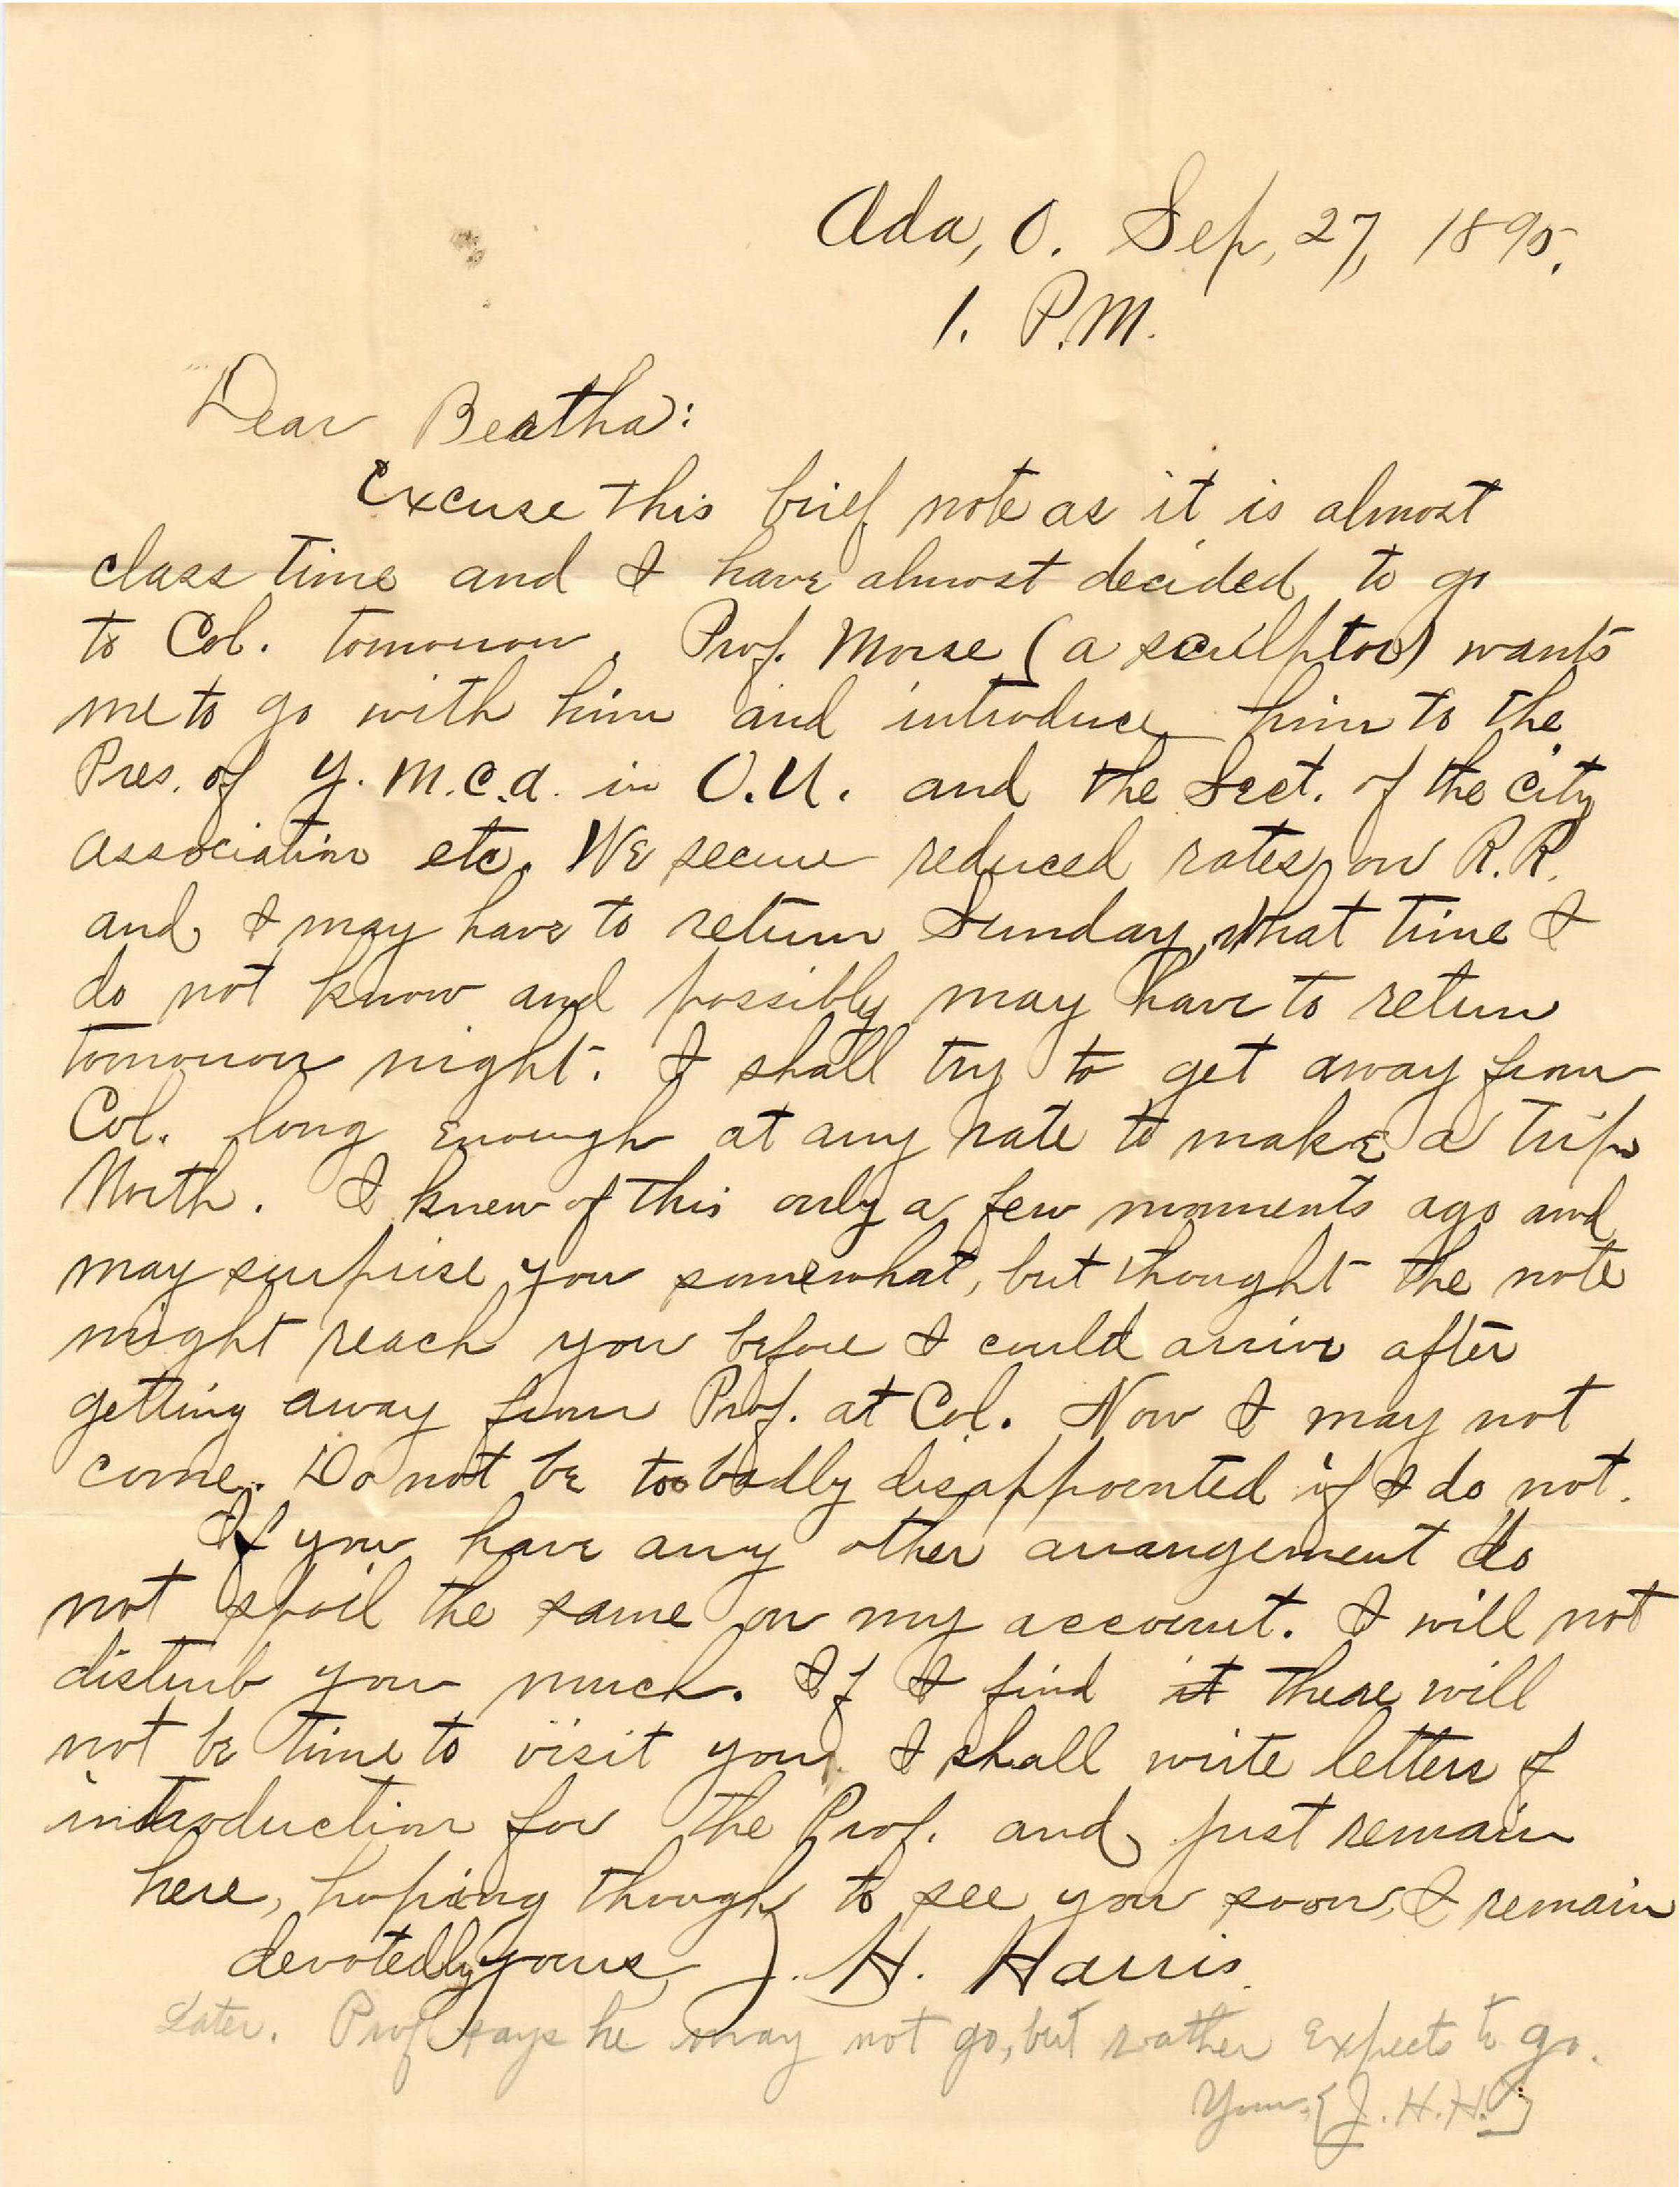 Ada, O. Sep, 27, 1895.
1. P.M.
Dear Beatha:
Excuse this brief note as it is almost
class time and I have almost decided to go
to Col. tomorrow. Prof. Morse (a sculptor) wants
me to go with him and introduce him to the
Pres. of Y.M.C.A. in O.U. and the Sect. of the city
association etc. We secure reduced rates on R.R.
and I may have to return Sunday, what time I
do not know and possibly may have to return
tomorrow night. I shall try to get away from
Col. long enough at any rate to make a trip
North. I knew of this only a few moments ago and
may surprise you somewhat, but thought the note
might reach you before I could arrive after
getting away from Prof. at Col. Now I may not
come. Do not be too badly disappointed if I do not.
If you have any other arrangement do
not spoil the same on my account. I will not
disturb you much. If I find it there will
not be time to visit you, I shall write letters of
introduction for the Prof. and just remain
here, hoping though to see you soon, I remain
devotedly yours, J. H. Harris.
Later. Prof says he may not go, but rather expects to go.
Yours, {J.H.H.}